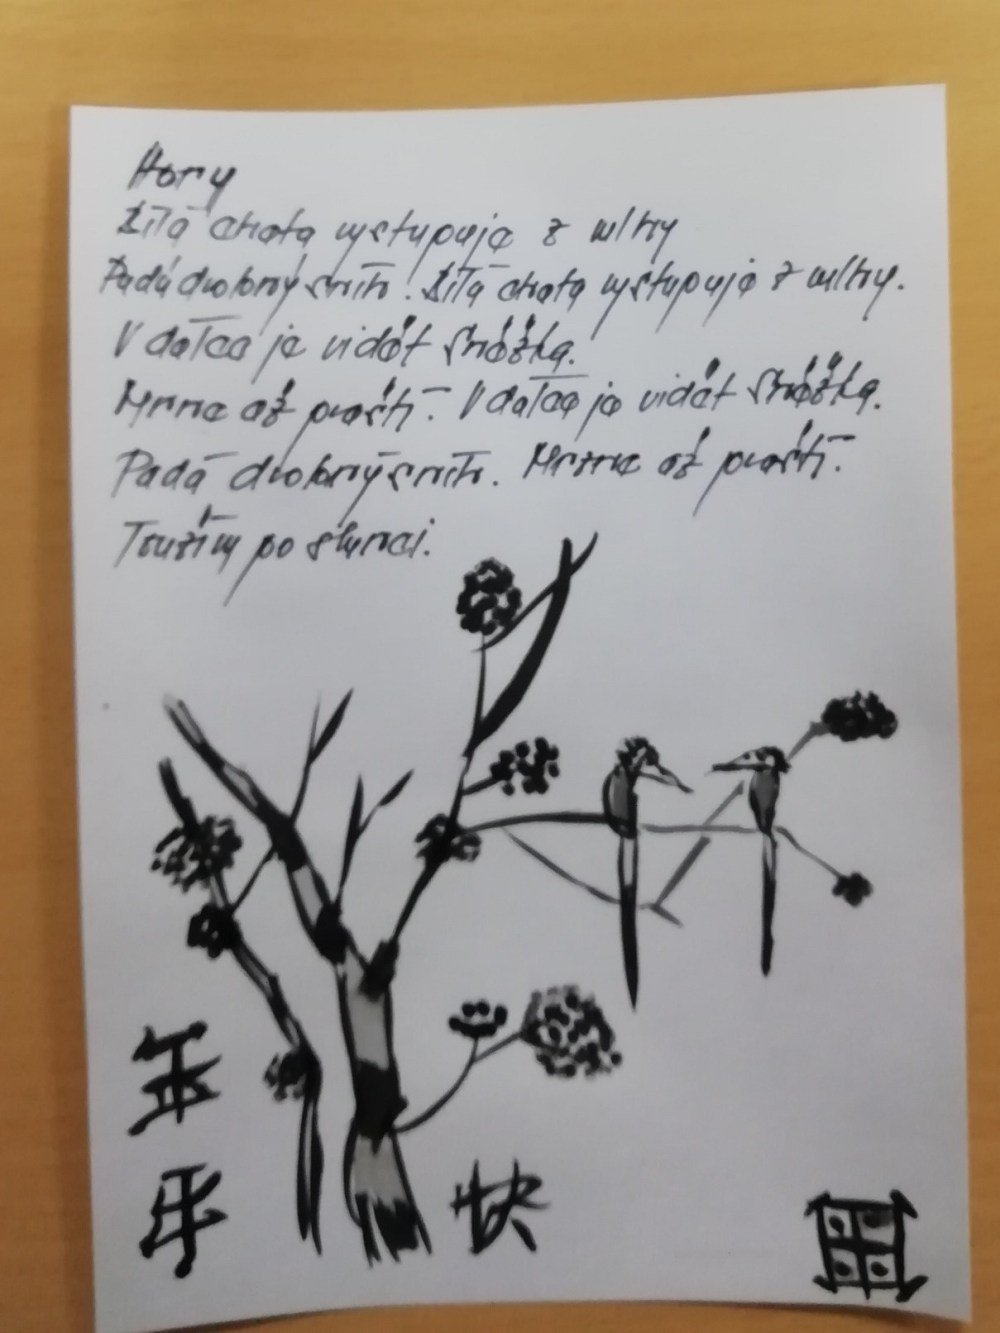 Hory
Bílá chata vystupuje z mlhy
Padá drobný sníh. Bílá chata vystupuje z mlhy.
V dálce je vidět Sněžka.
Mrzne až praští. V dálce je vidět Sněžka.
Padá drobný sníh. Mrzne až praští.
Toužím po slunci.
年
快